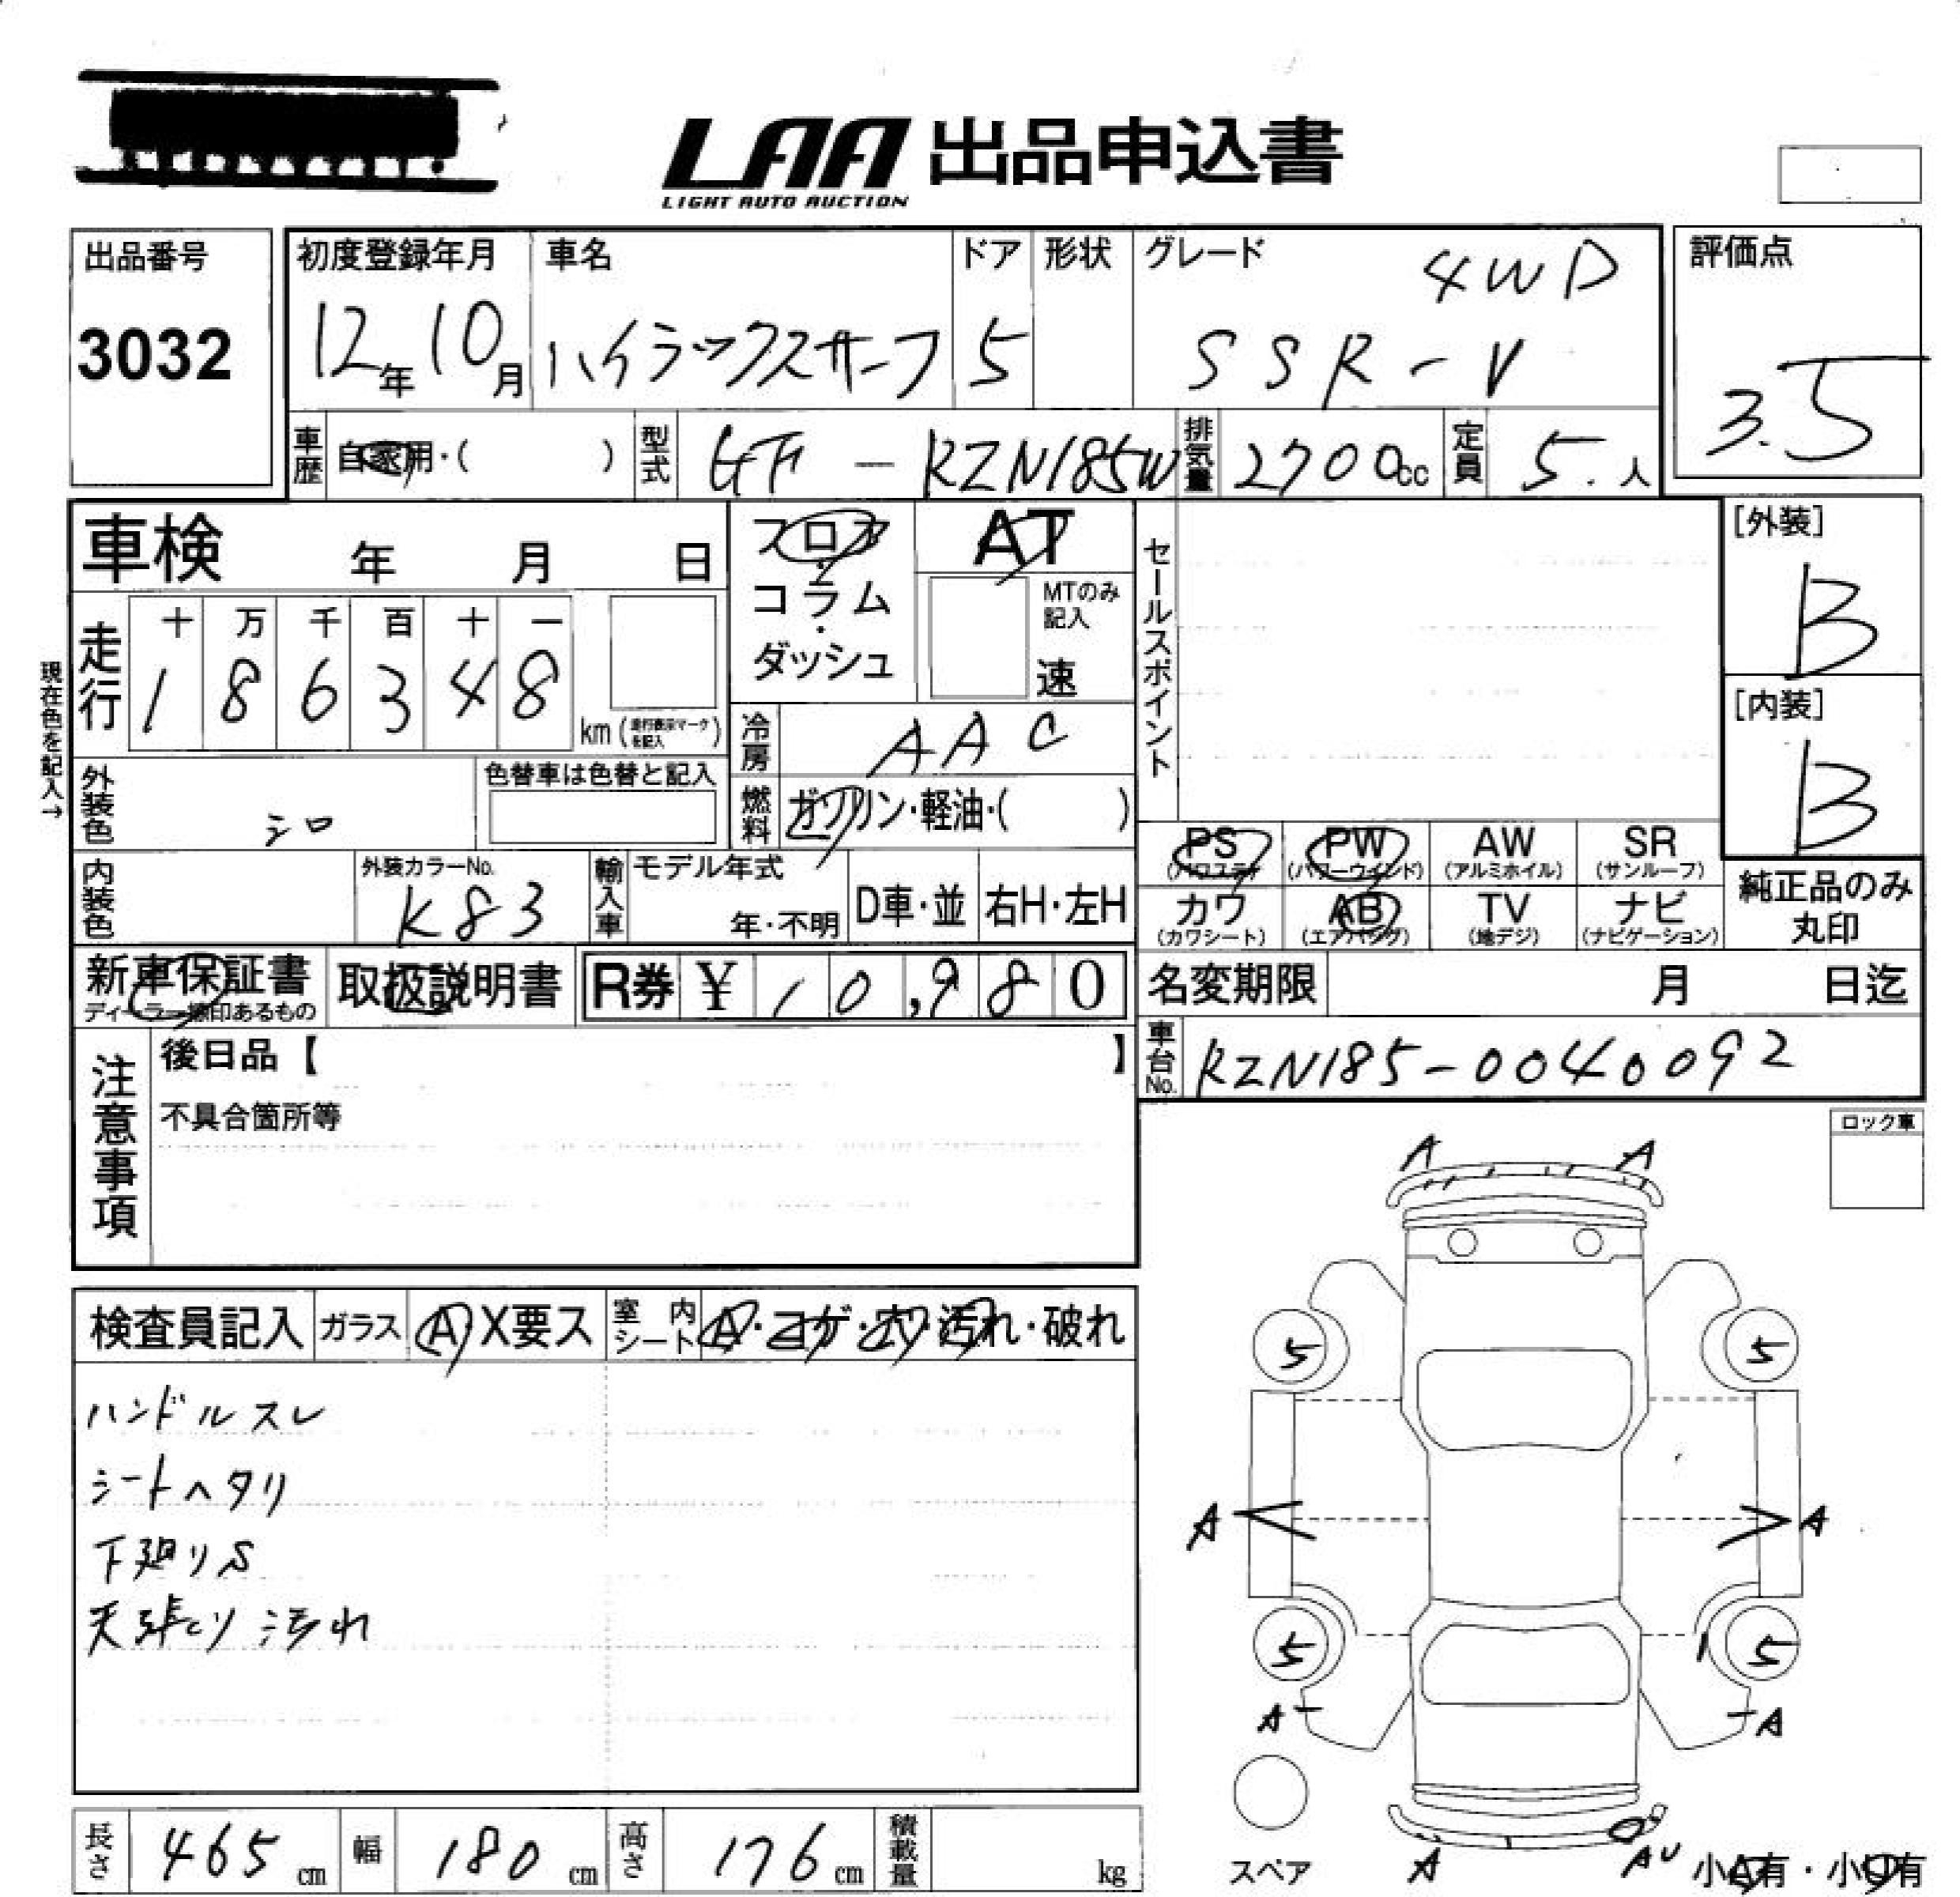 LAA 出品申込書
LIGHT AUTO AUCTION
出品番号
3032
初度登録年月
12年10月
車名
ハイラックスサーフ
ドア
5
形状
グレード
4WD
SSR-V
評価点
3.5
車歴
自家用・( )
型式
GF-RZN185W
排気量
2700cc
定員
5.人
車検 年 月 日
フロア・
コラム・
ダッシュ
AT
MTのみ
記入
速
セールスポイント
[外装]
B
[内装]
B
現在色を記入→
走行
十 万 千 百 十 一
1 8 6 3 4 8
km (走行表示マークを記入)
冷房
AAC
外装色
シロ
色替車は色替と記入
燃料
ガソリン・軽油・( )
PS
(パワステ)
PW
(パワーウインド)
AW
(アルミホイル)
SR
(サンルーフ)
内装色
外装カラーNo.
K83
輸入車
モデル年式
年・不明
D車・並
右H・左H
カワ
(カワシート)
AB
(エアバッグ)
TV
(地デジ)
ナビ
(ナビゲーション)
純正品のみ
丸印
新車保証書
ディーラー捺印あるもの
取扱説明書
R券 ¥10,980
名変期限 月 日迄
車台No.
RZN185-0040092
注意事項
後日品【 】
不具合箇所等
ロック車
検査員記入
ガラス
A・X要ス
室内シート
A・コゲ・穴・汚れ・破れ
ハンドルスレ
シートヘタリ
下廻りS
天張り汚れ
A A
5 5
A A
5 5
A A
スペア
A AU
小A有・小U有
長さ
465cm
幅
180cm
高さ
176cm
積載量
kg